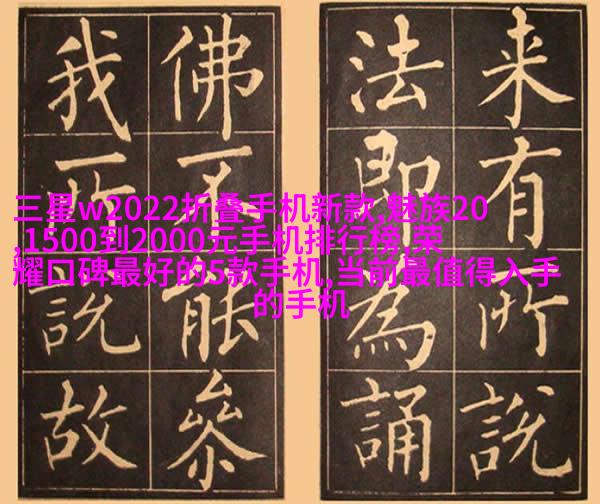 三星w2022折叠手机新款,魅族20
,1500到2000元手机排行榜,荣
耀口碑最好的5款手机,当前最值得入手
的手机
来有所說
法即為誦
佛能參
我所說故